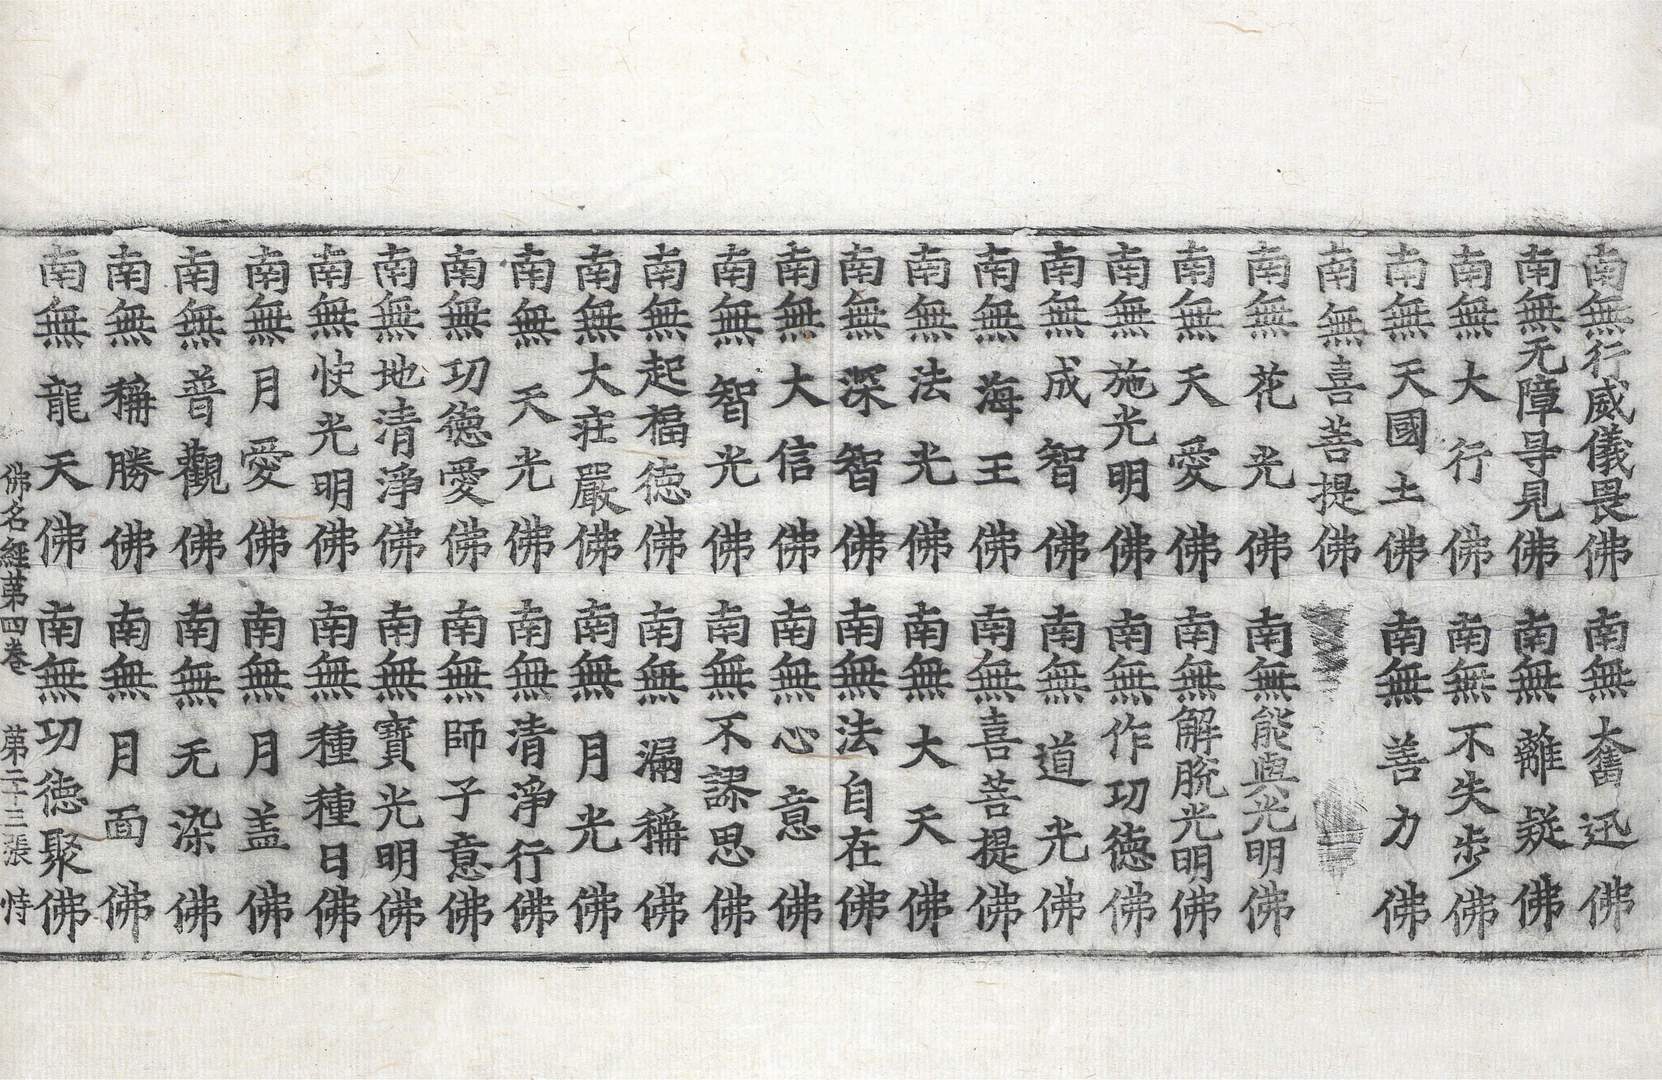 南無行威儀畏佛　南無大奮迅佛
南無无障㝵見佛　南無離疑佛
南無大行佛　南無不失步佛
南無天國土佛　南無善力佛
南無喜菩提佛
南無花光佛　南無能與光明佛
南無天愛佛　南無解脫光明佛
南無施光明佛　南無作功德佛
南無成智佛　南無道光佛
南無海王佛　南無喜菩提佛
南無法光佛　南無大天佛
南無深智佛　南無法自在佛
南無大信佛　南無心意佛
南無智光佛　南無不謬思佛
南無起福德佛　南無漏稱佛
南無大莊嚴佛　南無月光佛
南無天光佛　南無清淨行佛
南無功德愛佛　南無師子意佛
南無地清淨佛　南無寶光明佛
南無快光明佛　南無種種日佛
南無月愛佛　南無月盖佛
南無普觀佛　南無无染佛
南無稱勝佛　南無月面佛
南無龍天佛　南無功德聚佛
佛名經第四卷　第二十三張　恃